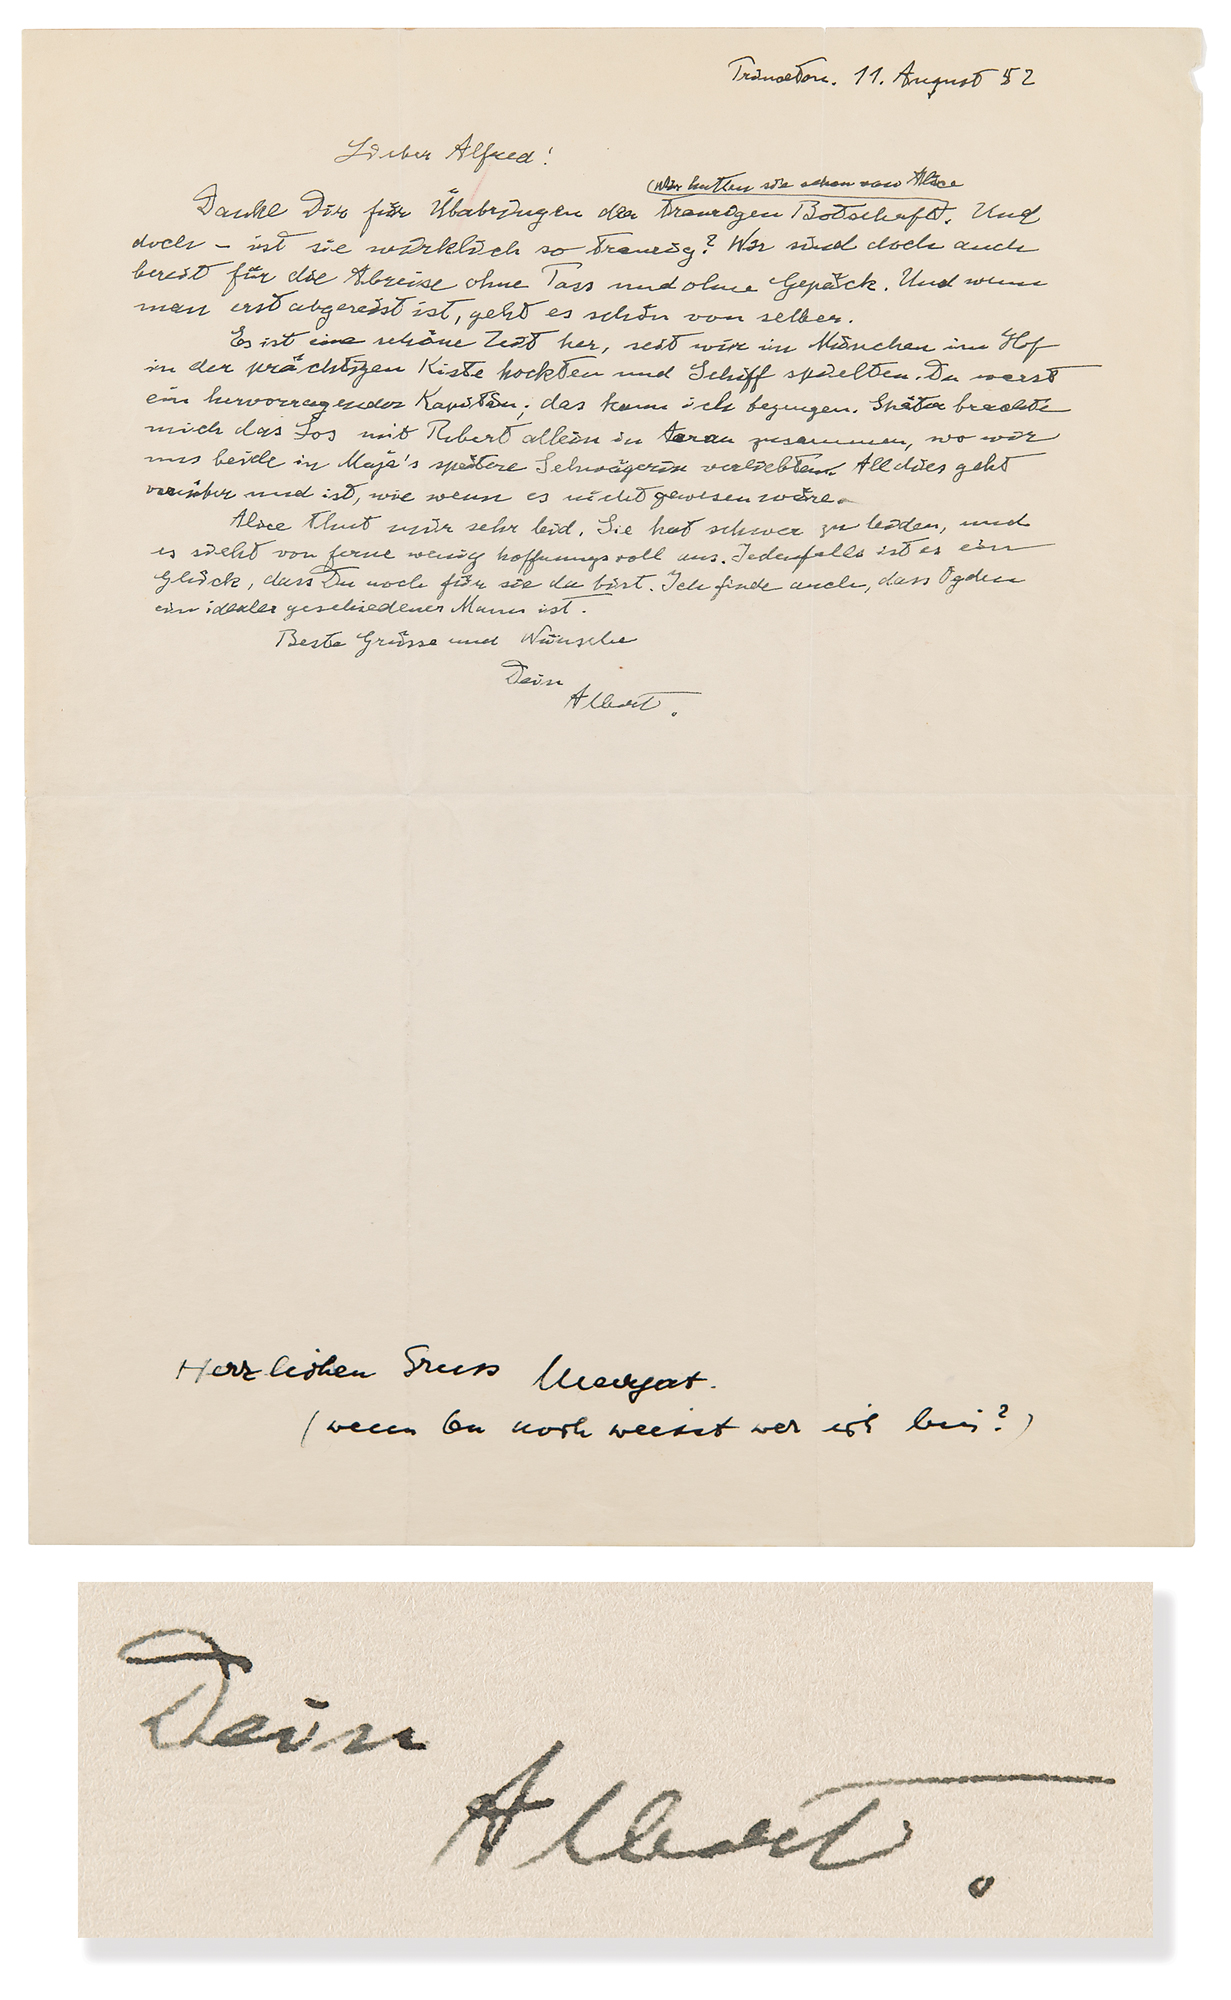 Princeton. 11. August 52
Lieber Alfred!
(Wir hatten sie schon von Alice
Danke Dir für Überbringen der traurigen Botschaft. Und
doch – ist sie wirklich so traurig? Wir sind doch auch
bereit für die Abreise ohne Pass und ohne Gepäck. Und wenn
man erst abgereist ist, geht es schön von selber.
Es ist eine schöne Zeit her, seit wir in München im Hof
in der prächtigen Kiste hockten und Schiff spielten. Du warst
ein hervorragender Kapitän; das kann ich bezeugen. Später brachte
mich das Los mit Robert allein in Aarau zusammen, wo wir
uns beide in Maja's spätere Schwägerin verliebten. All dies geht
vorüber und ist, wie wenn es nicht gewesen wäre.
Alice thut mir sehr leid. Sie hat schwer zu leiden, und
es sieht von ferne wenig hoffnungsvoll aus. Jedenfalls ist es ein
Glück, dass Du noch für sie da bist. Ich finde auch, dass Ogden
ein idealer geschiedener Mann ist.
Beste Grüsse und Wünsche
Dein
Albert.
Herzlichen Gruss Margot.
(wenn Du noch weisst wer ich bin?)
Dein
Albert.